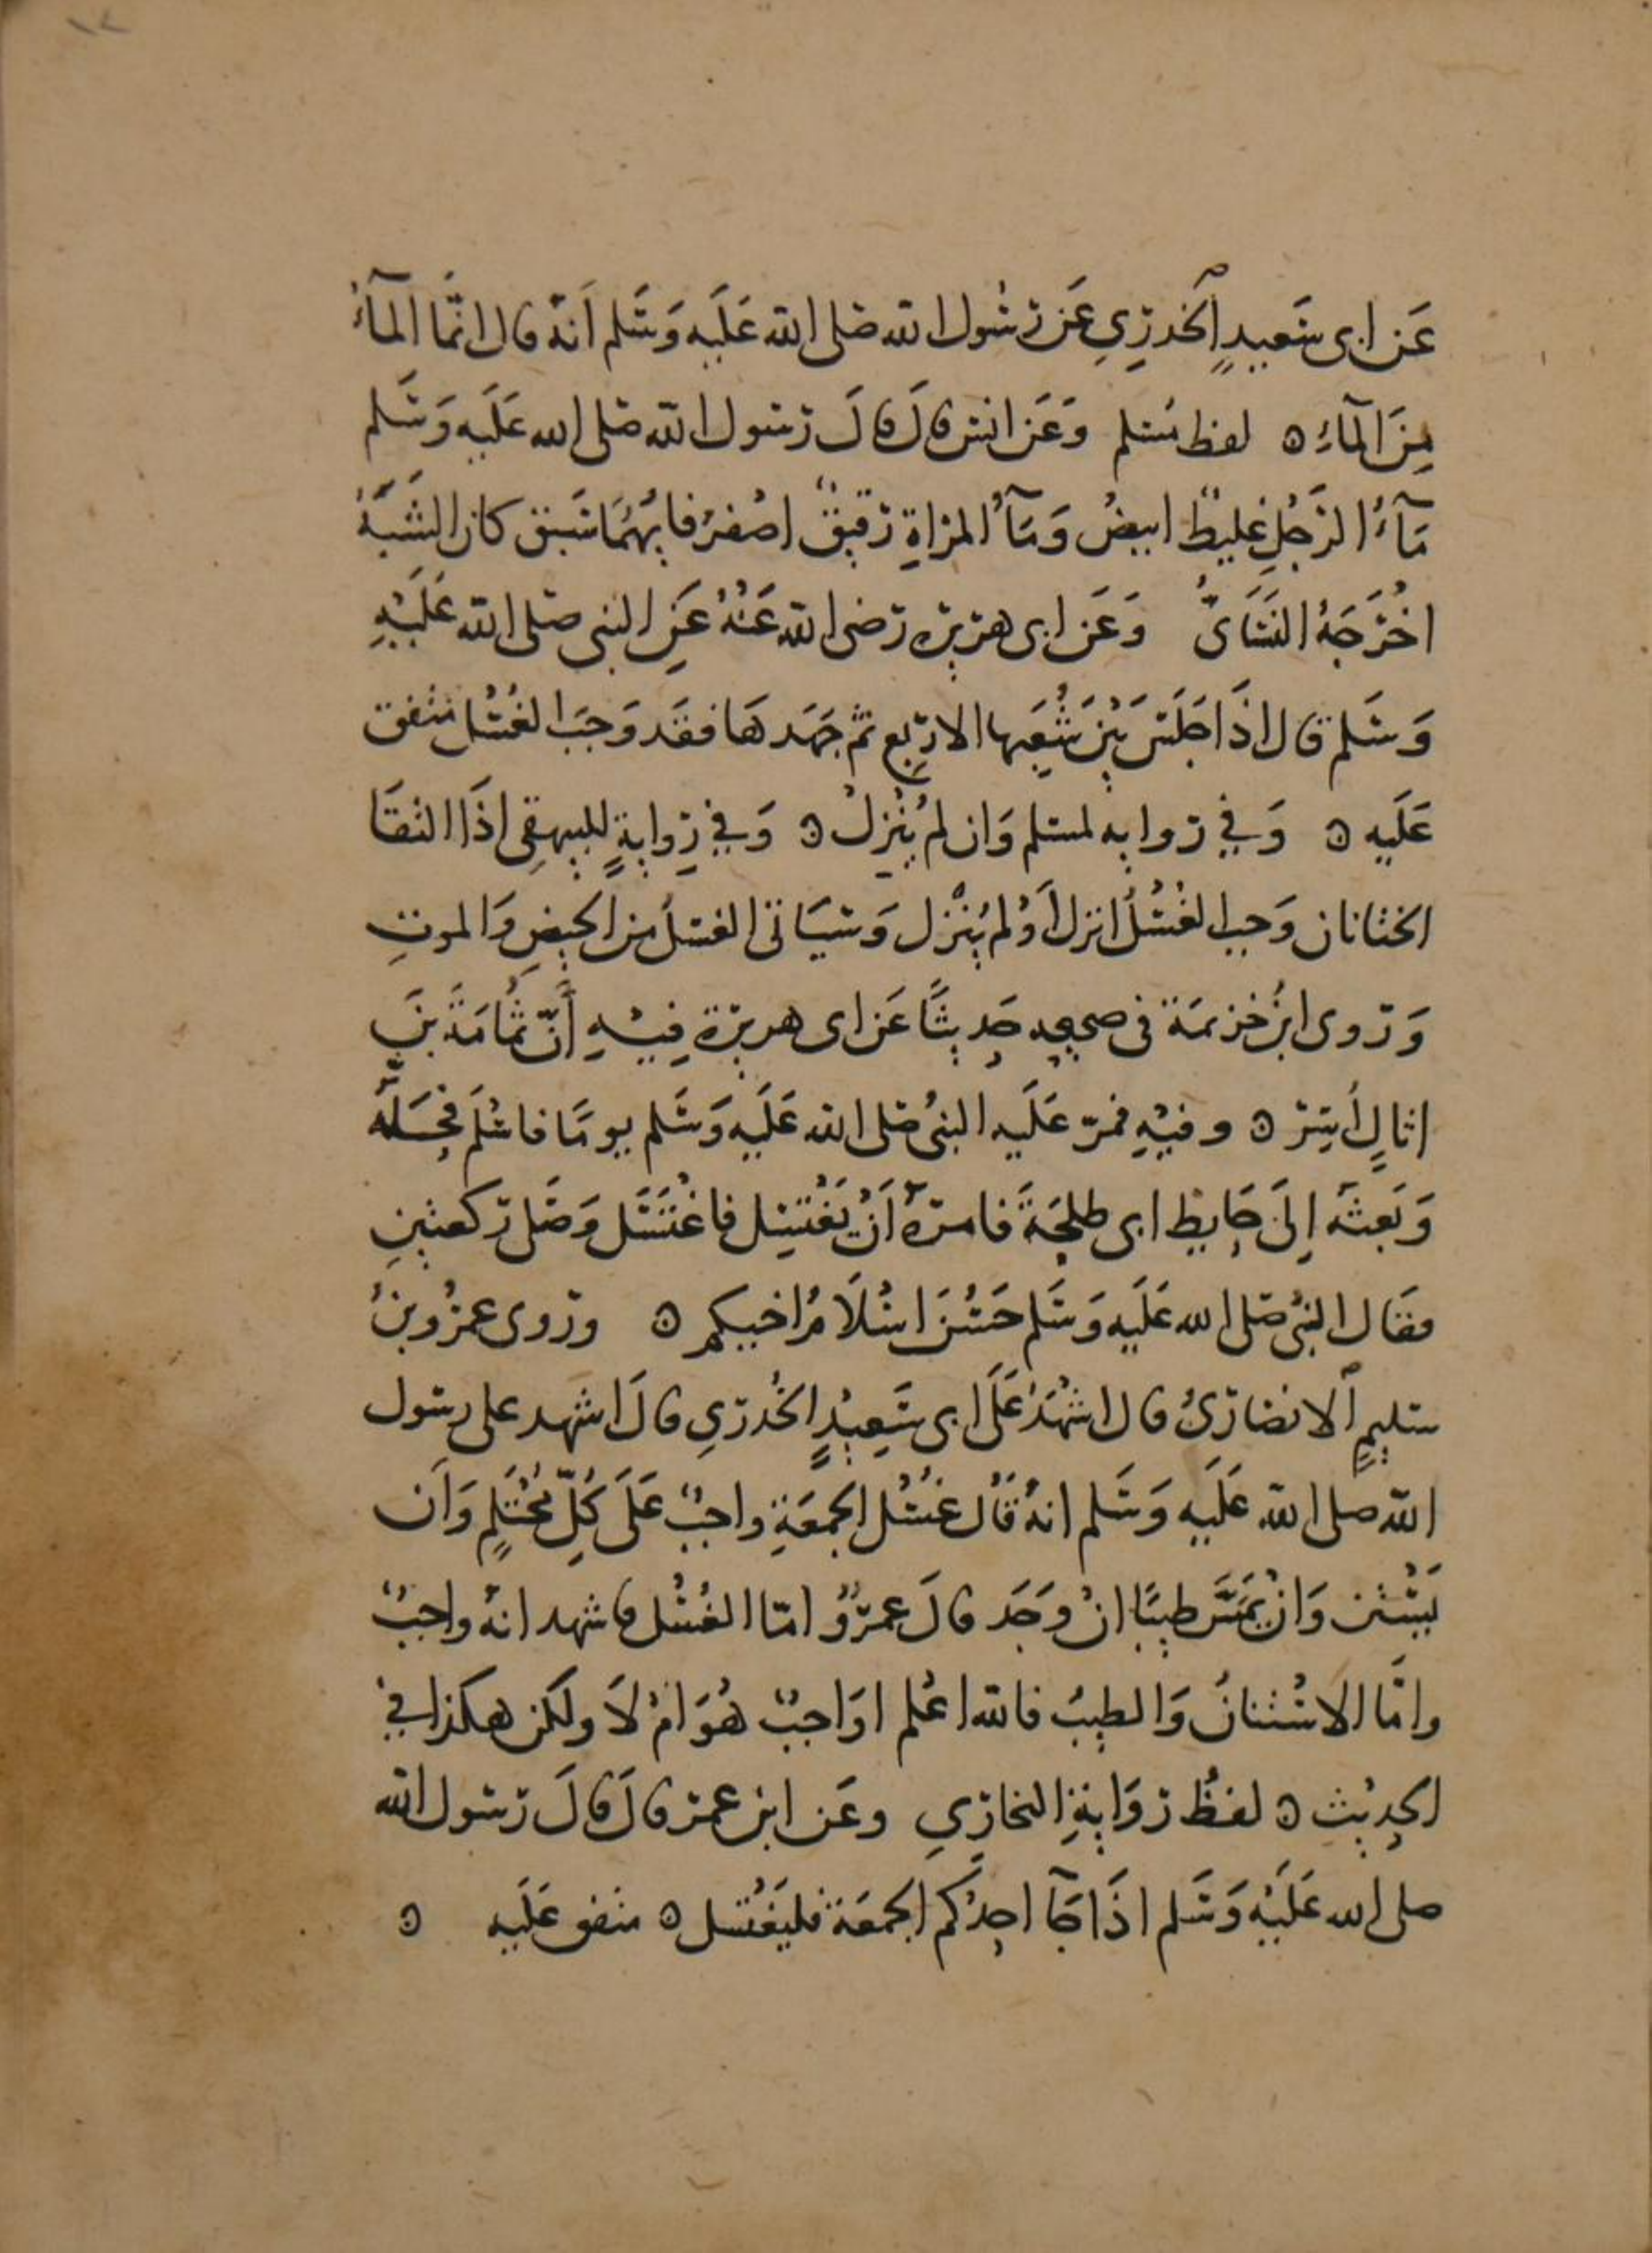 ١٤
عَن ابى سَعيدٍ الخدرِيِ عَن رسُول الله صَلى الله عَليَه وَسَلم اَنهُ قال انمَّا المآءُ
مِنَ المآءِ ه لفظ مُسلم وَعَن انس قالَ قالَ رَسول الله صَلى الله عَليَه وَسَلم
مَآءُ الرَجُلِ غليظٌ ابيضُ وَمَآُ المراةِ رَقيقٌ اصْفرُ فايهُمَا سَبق كان الشَبَهُ
اخْرَجَهُ النَسَائُ وَعَن ابى هريره رضى الله عَنْهُ عَنِ النبى صَلى الله عَليَهِ
وَسَلم قال اذَا جَلَسَ بَيْن شُعَبِها الاربَع ثم جَهَدهَا فقَد وَجَبَ الغُسْل متفق
عَلَيه ه وَفي روايه لمسلم وَان لم يُنْزِلْ ه وَفي رِوايةٍ للبيهقى اذَا التقَا
الختانان وَجب الغُسْلُ انزل اَوْ لم يُنْزل وَسَيَاتى الغسلُ من الحيضِ وَالموتِ
وَرَوى ابنُ خزيمَة فى صحيحه حَدِيثًا عَن ابى هريرة فِيْهِ أَنّ ثُمَامَةَ بنَ
اثالٍ أُسِرَ ه وفيْهِ فمرّ عَلَيه النبىُ صَلى الله عَلَيه وَسَلم يومًا فاسْلَم فحَلَّهُ
وَبَعثَه اِلَى حَايطِ ابى طلحَةَ فامَرهُ أَنْ يَغْتسِل فاغْتَسَل وَصَلى ركعتينِ
فقَال النبىُ صَلى الله عَلَيه وَسَلم حَسُنَ اسْلَامُ اخيكم ه ورَوى عمرُو بنُ
سليمٍ الانصَارىُ قال اشهَدُ عَلَى ابى سَعِيْدٍ الخُدرِيِ قالَ اشهد على رسول
الله صلى الله عَلَيه وَسَلم انهُ قَال غُسْل الجمعَةِ واجبٌ عَلَى كُلِّ مُحْتَلِمٍ وَاَن
يَسْتن وَانْ يَمَسَّ طيبًا انْ وَجَد قالَ عمروٌ امّا الغُسْل فاشهد انهُ واجبٌ
وامَّا الاسْتنانُ وَالطيبُ فالله اعْلم اوَاجبٌ هُوَ امْ لاَ ولكن هكذا في
الحدِيْث ه لفظُ رِوَايةِ البخارِيِ وعَن ابن عمر قالَ قالَ رَسول الله
صلى الله عَلَيْه وَسَلم اذَا جَآ احدُكم الجمعَة فليَغْتسل ه متفق عَلَيه ه